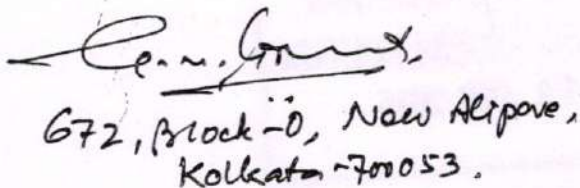 672, Block-O, New Alipore,
Kolkata-700053.